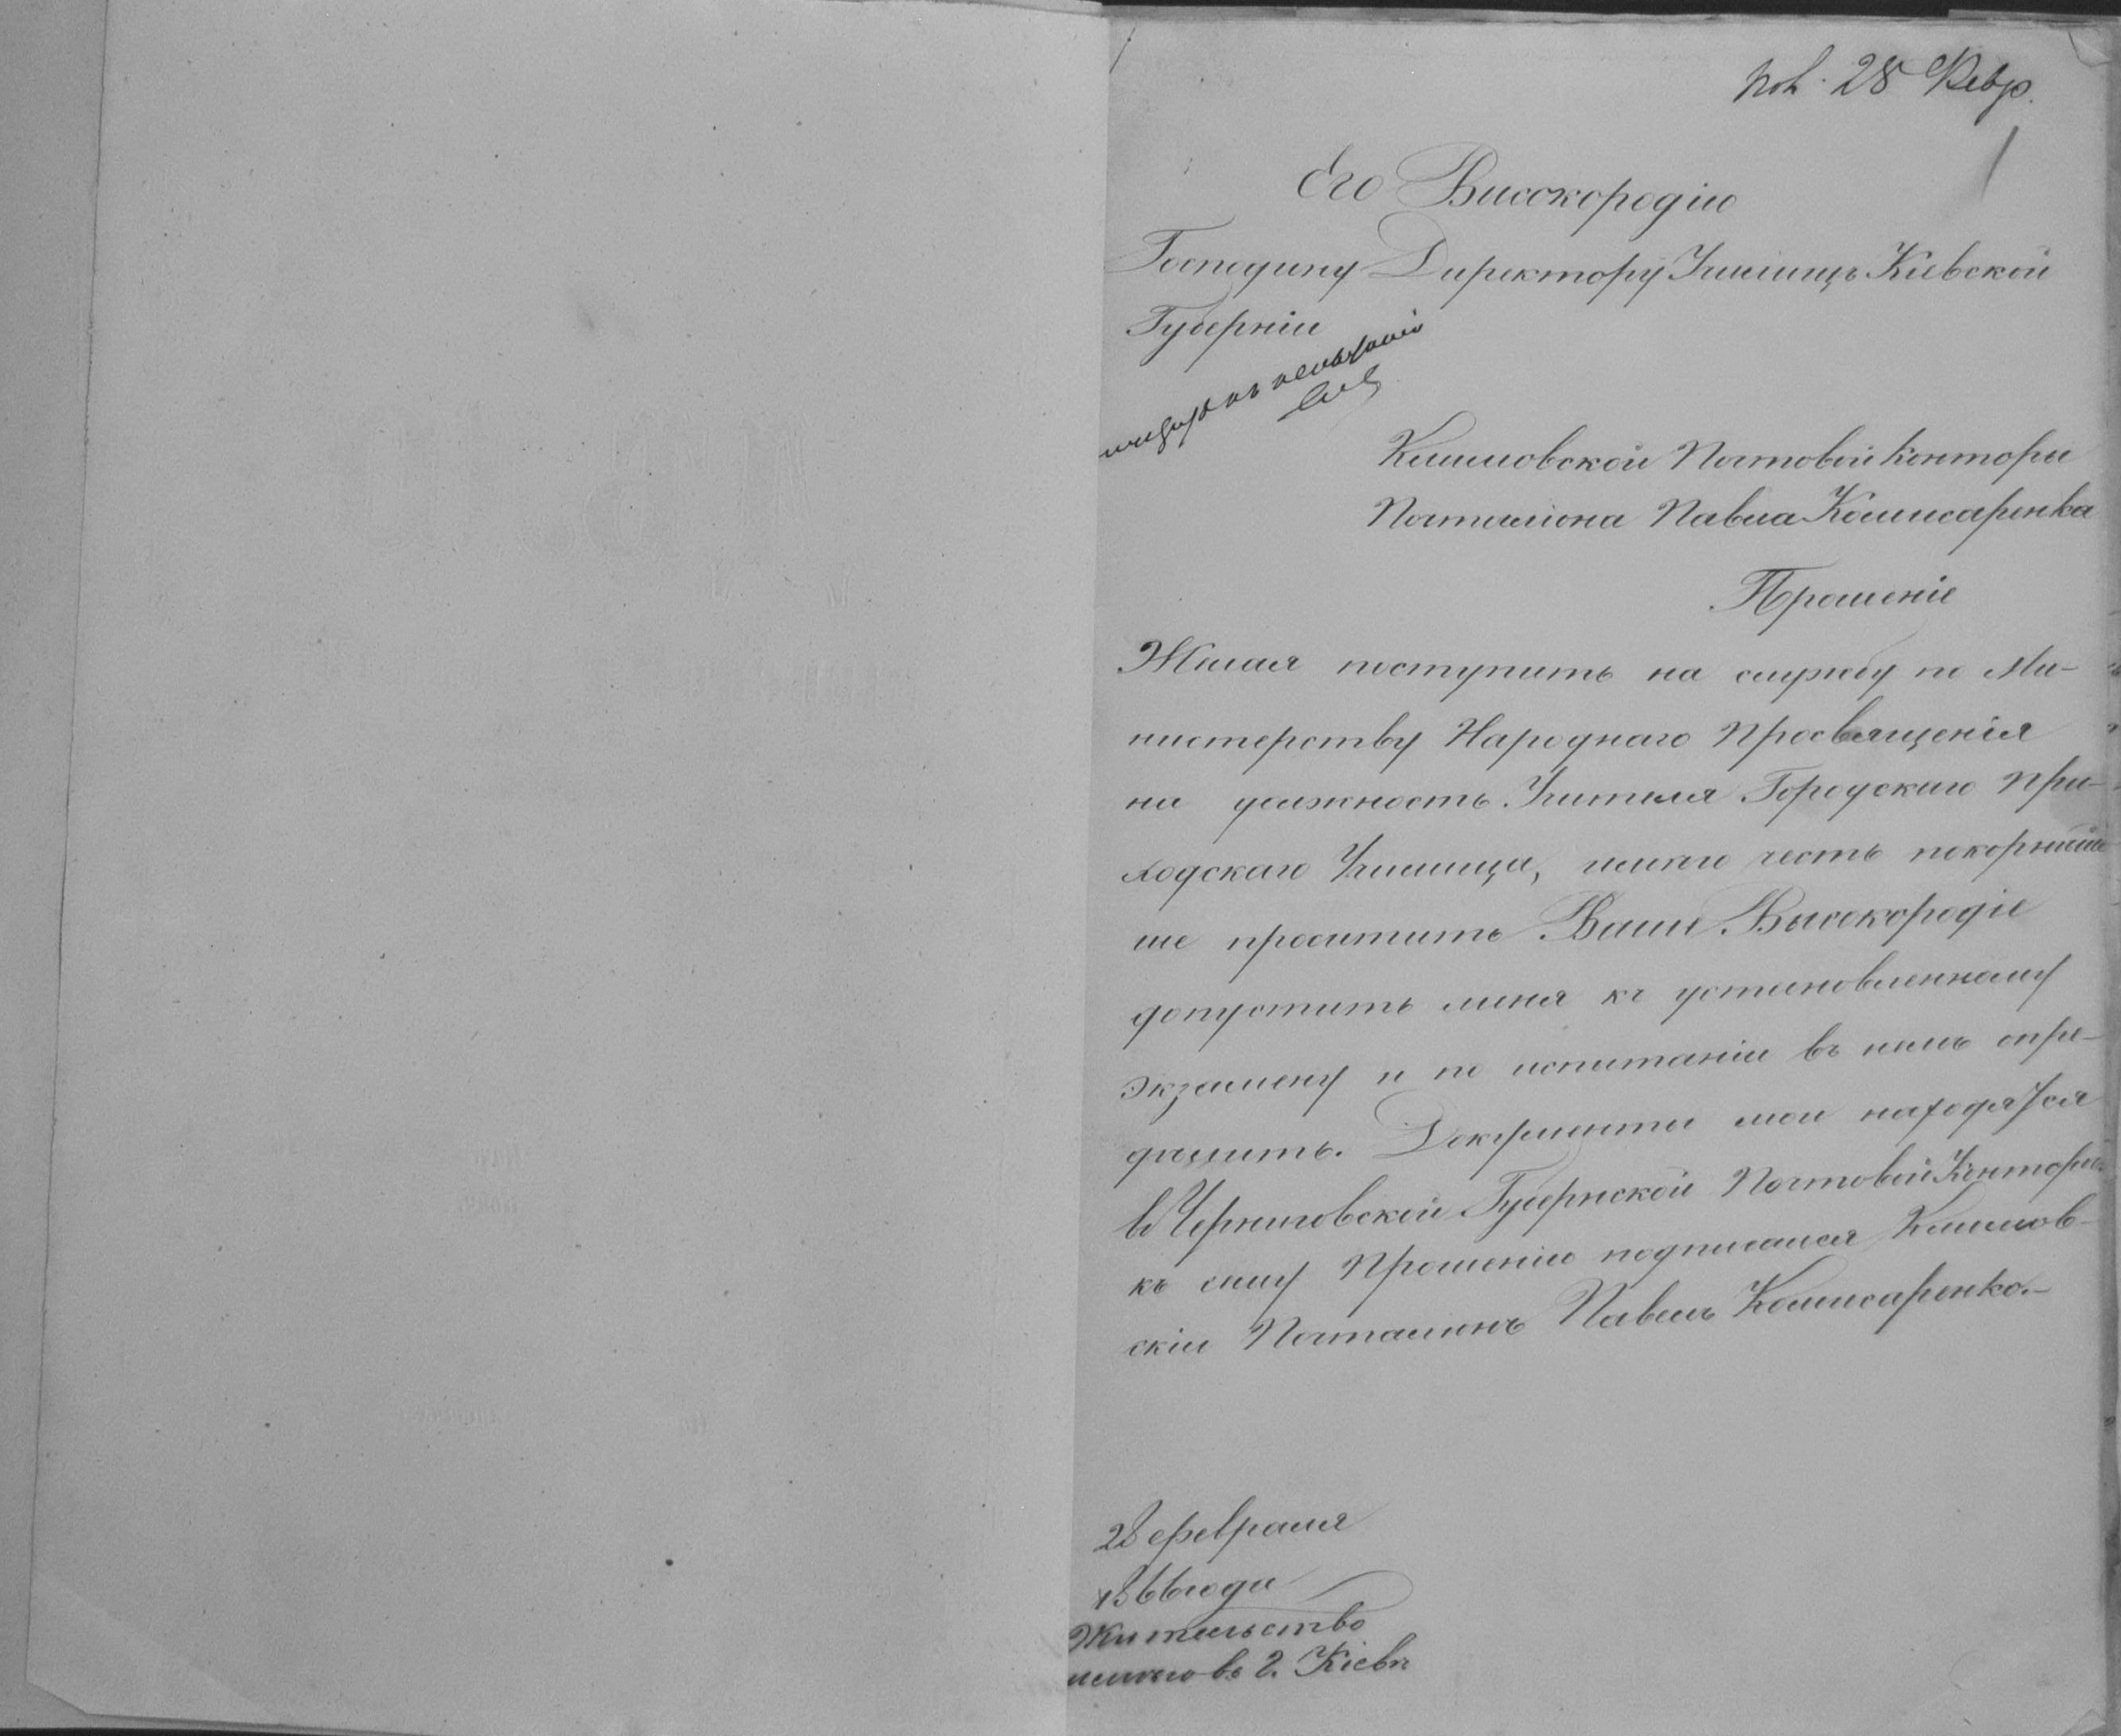 28 Февр.
1
Его Високородію
Господину Директору Училищъ Киевской
Губерніи
Почтовой Конторы
Почталиона Павла Комисаренка
Прошеніе
Желая поступить на службу по Ми-
нистерству Народнаго Просвящения
на должность Учителя Городскаго При-
ходскаго Училища, имѣю честь покорнѣй
ше проситить Ваше Высокородіе
допустить меня къ установленному
экзамену и по испитаніи въ немъ опре-
дѣлить. Документы мои находятся
въ Черниговской Губернской Почтовой Конторе
къ сему Прошенію подписался
скій Почталионъ Павелъ Комисаренко.-
28 февраля
1866 года
Жительство
имѣю въ г. Кіевѣ